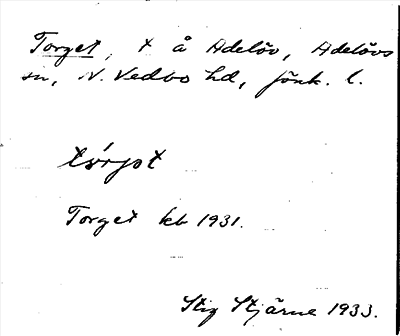 Torget, t å Adelöv, Adelövs
sn, N. Vedbo hd, Jönk. l.
tórjət
Torget kb 1931.
Stig Stjärne 1933.